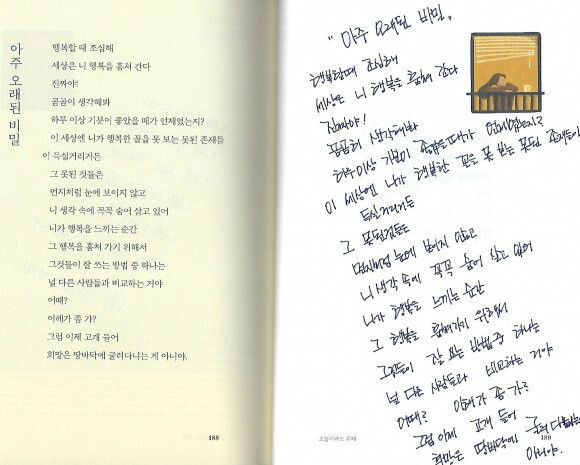 아주 오래된 비밀
행복할 때 조심해
세상은 니 행복을 훔쳐 간다
진짜야!
곰곰이 생각해봐
하루 이상 기분이 좋았을 때가 언제였는지?
이 세상엔 니가 행복한 꼴을 못 보는 못된 존재들
이 득실거리거든
그 못된 것들은
먼지처럼 눈에 보이지 않고
니 생각 속에 꼭꼭 숨어 살고 있어
니가 행복을 느끼는 순간
그 행복을 훔쳐 가기 위해서
그것들이 잘 쓰는 방법 중 하나는
널 다른 사람들과 비교하는 거야
어때?
이해가 좀 가?
그럼 이제 고개 들어
희망은 땅바닥에 굴러다니는 게 아니야.
188
"아주 오래된 비밀"
행복할때 조심해
세상은 니 행복을 훔쳐 간다
진짜야!
곰곰히 생각해봐
하루이상 기분이 좋았을때가 언제였는지?
이 세상엔 니가 행복한 꼴을 못 보는 못된 존재들이
득실거리거든
그 못된것들은
먼지처럼 눈에 보이지 않고
니 생각 속에 꼭꼭 숨어 살고 있어
니가 행복을 느끼는 순간
그 행복을 훔쳐가기 위해서
그것들이 잘 쓰는 방법중 하나는
널 다른 사람들과 비교하는 거야
어때? 이해가 좀 가?
그럼 이제 고개 들어
희망은 땅바닥에 굴러다니는게
아니야.
189